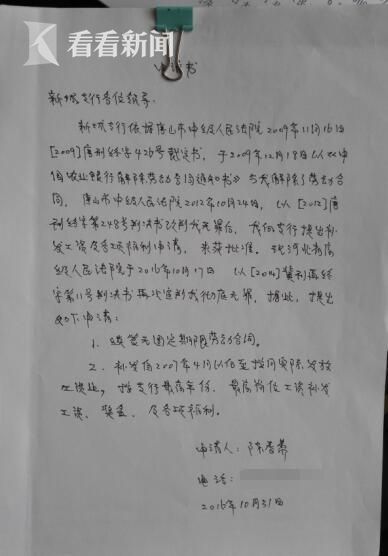 看看新闻
申请书
新城支行各位领导:
新城支行依据唐山市中级人民法院2009年11月16日
[2009]唐刑终字426号裁定书,于2009年12月18日以《中
国农业银行解除劳动合同通知书》与我解除了劳动合
同,唐山市中级人民法院2012年10月24日,以[2012]唐
刑终字第248号判决书改判我无罪后,我向支行提出补
发工资及各项福利申请,未获批准。现河北省高
级人民法院于2016年10月17日 以[2014]冀刑再终
字第11号判决书再次宣判我彻底无罪,据此,提出
如下申请:
1、续签无固定期限劳动合同。
2、补发自2007年4月以后至按月实际发放
工资止,按支行最高年份、最高岗位工资补发
工资、奖金、及各项福利。
申请人:陈
电话:
2016年10月31日